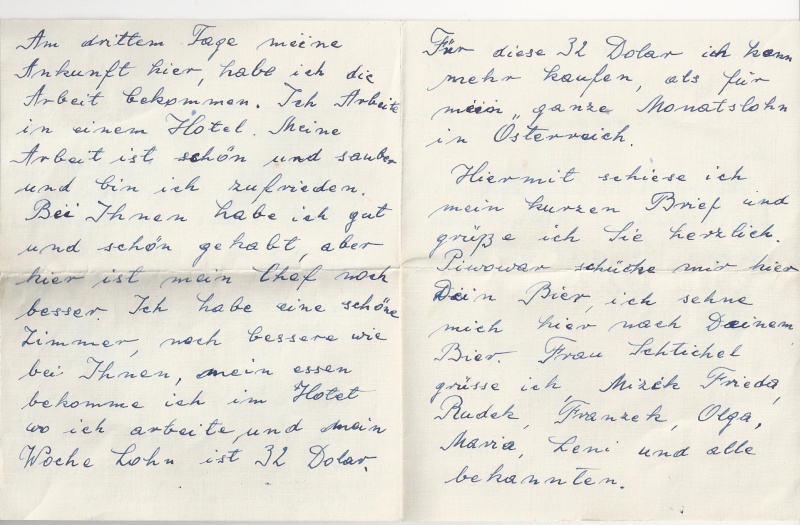 Am drittem Tage meine
Ankunft hier, habe ich die
Arbeit bekommen. Ich Arbeite
in einem Hotel. Meine
Arbeit ist schön und sauber
und bin ich zufrieden.
Bei Ihnen habe ich gut
und schön gehabt, aber
hier ist mein Chef noch
besser. Ich habe eine schöne
Zimmer, noch bessere wie
bei Ihnen, mein essen
bekomme ich im Hotel
wo ich arbeite, und mein
Woche Lohn ist 32 Dolar.
Für diese 32 Dolar ich kann
mehr kaufen, als für
mein ganze Monatslohn
in Österreich.
Hiermit schiese ich
mein kurzen Brief und
grüße ich Sie herzlich.
Piwowar schücke mir hier
Dein Bier, ich sehne
mich hier nach Deinem
Bier. Frau Schtichel
grüsse ich, Mizek Frieda,
Rudek, Franzek, Olga,
Maria, Leni und alle
bekannten.